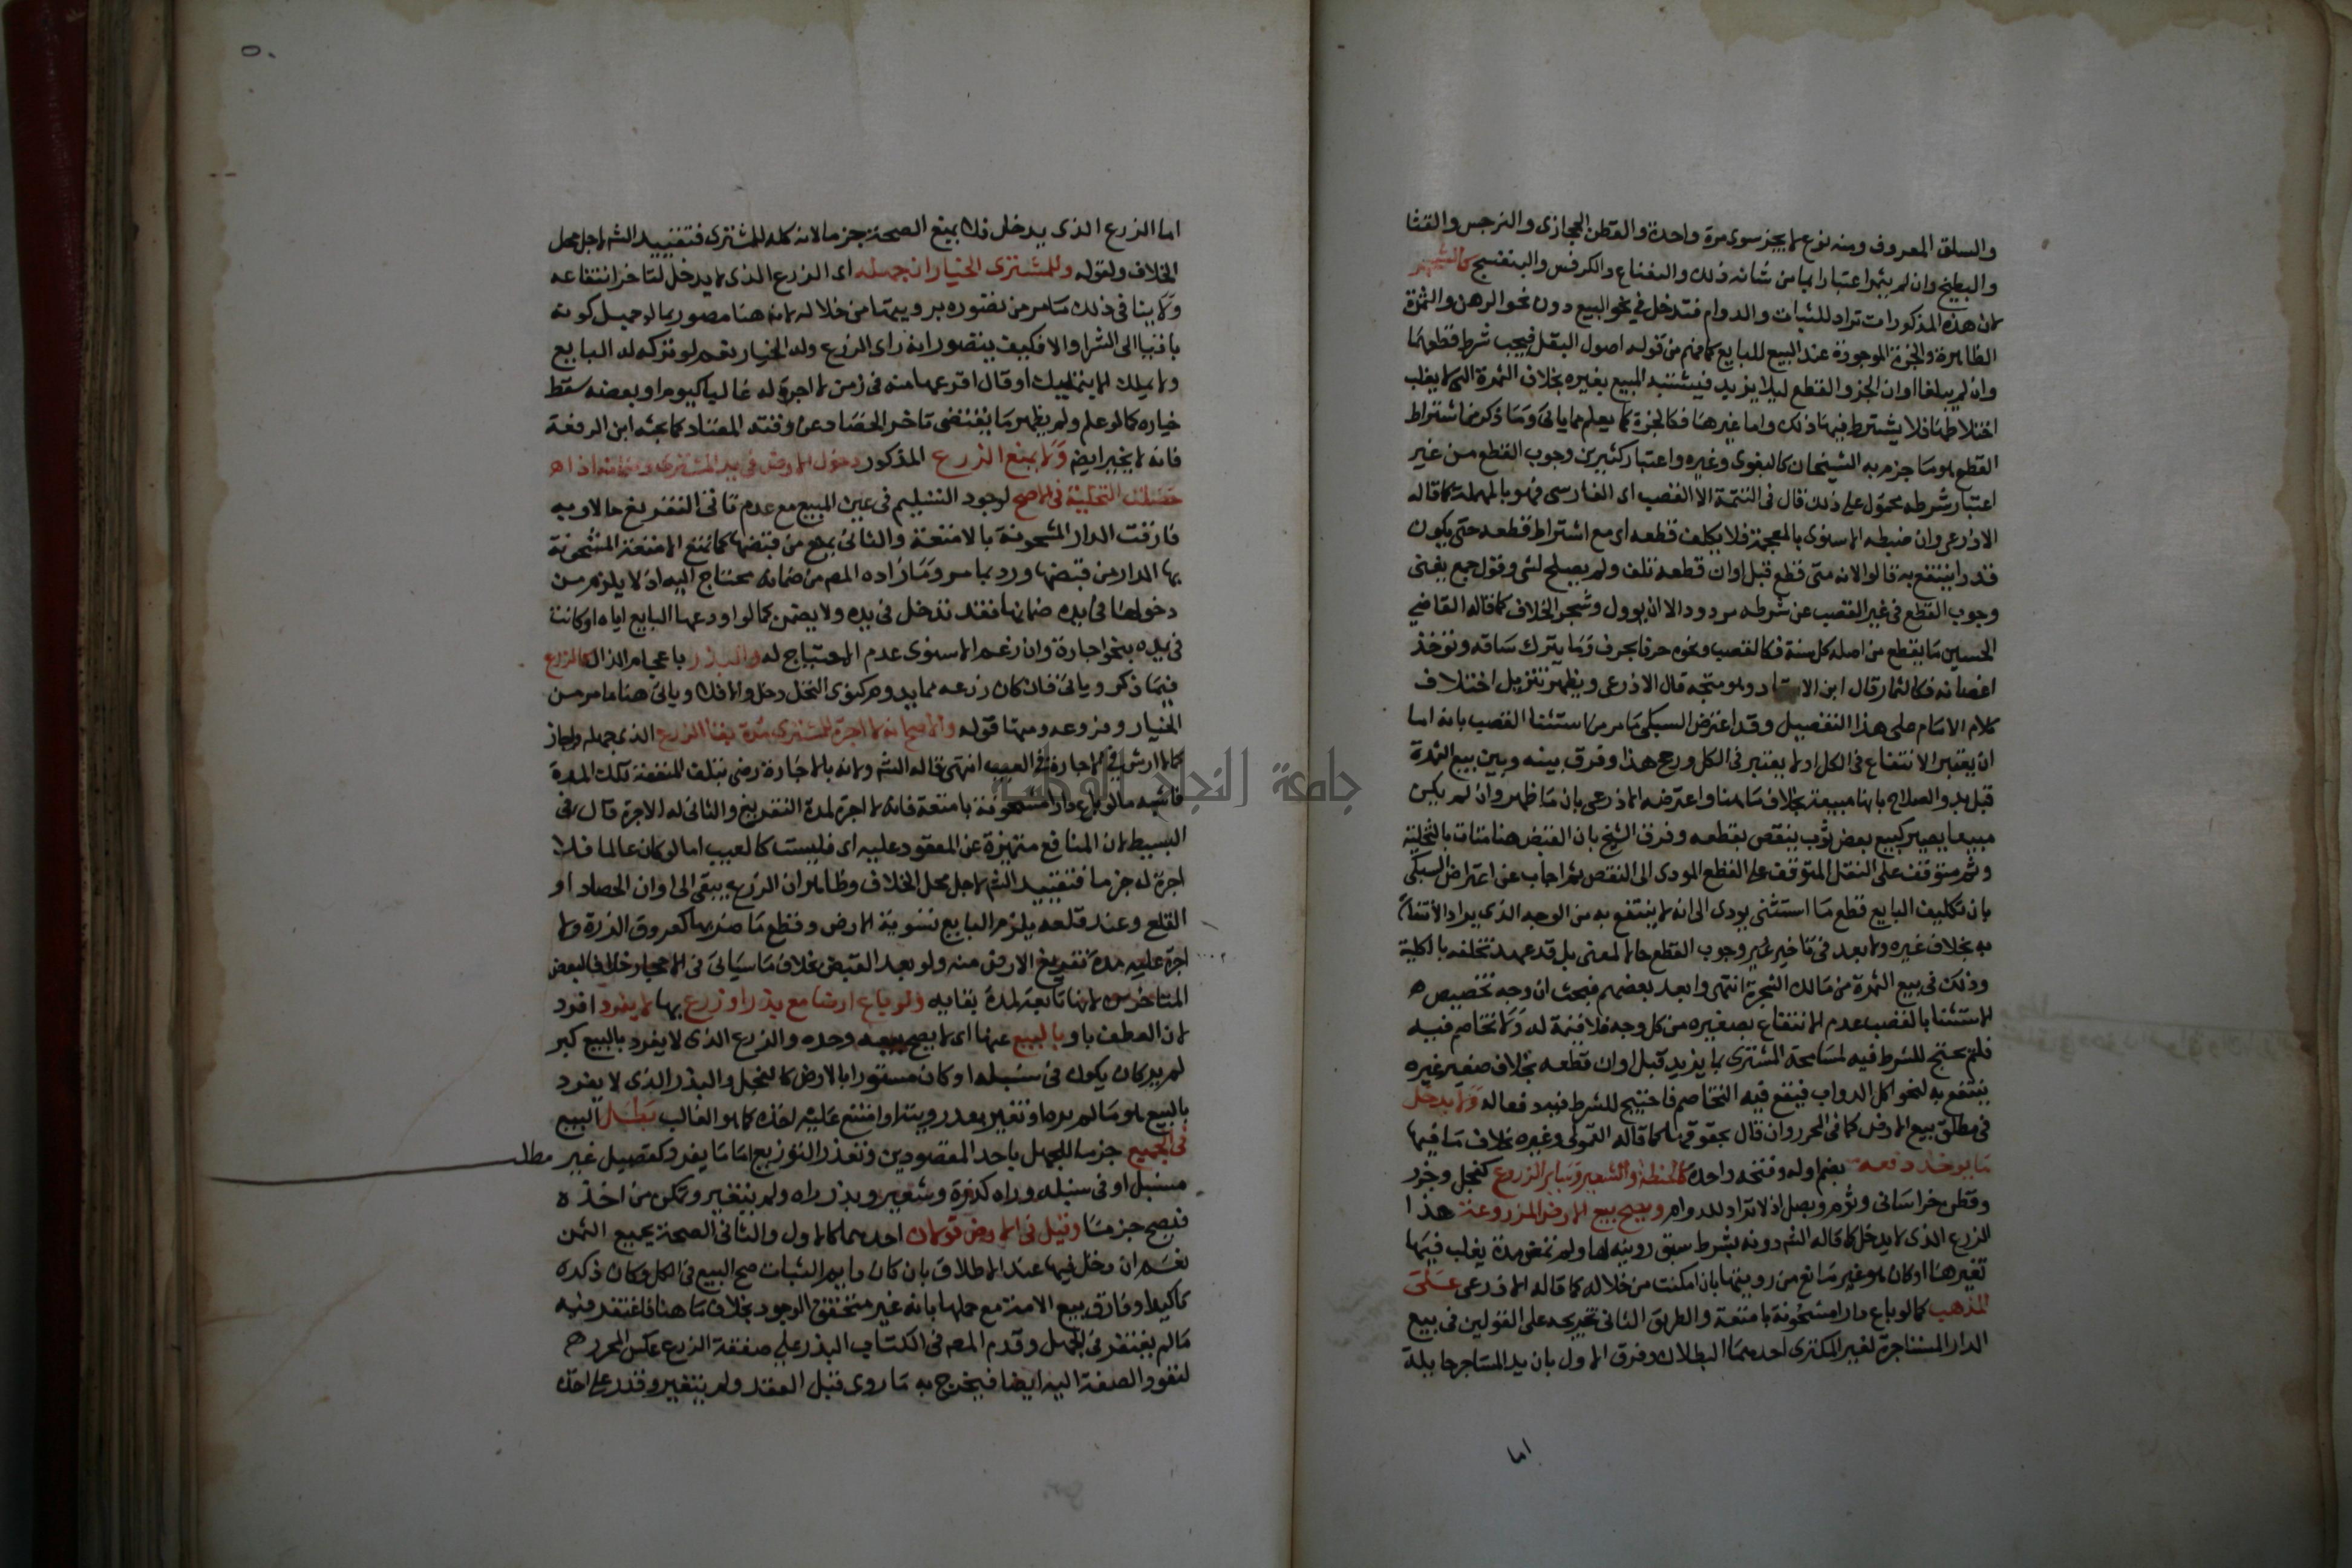 والسلق المعروف ومنه نوع لا يجز سوى مرة واحدة والقطن الحجازى والنرجس والقثا
والبطيخ وان لم يثمر اعتبارا بما من شانه ذلك والنعناع والكرفس والبنفسج كالشجر
لان هذه المذكورات تراد للثبات والدوام فتدخل في نحو البيع دون نحو الرهن والثمرة
الظاهرة والجزة الموجودة عند البيع للبايع كما فهم من قوله اصول البقل فيجب شرط قطعهما
وان لم يبلغا اوان الجز والقطع ليلا يزيد فيشتبه المبيع بغيره بخلاف الثمرة التى لا يغلب
اختلاطها فلا يشترط فيها ذلك واما غيرها فكالجزة كما يعلم مما ياتى وما ذكر من اشتراط
القطع هو ما جزم به الشيخان كالبغوى وغيره واعتبار كثيرين وجوب القطع من غير
اعتبار شرطه محمول على ذلك قال فى التتمة الا القصب اى الفارسى فهو بالمهملة كما قاله
الاذرعى وان ضبطه الاسنوى بالمعجمة فلا يكلف قطعه اى مع اشتراط قطعه حتى يكون
قدرا ينتفع به قالوا لانه متى قطع قبل اوان قطعه تلف ولم يصلح لشى وقول جمع يغنى
وجوب القطع فى غير القصب عن شرطه مردود الا ان يوول وشجر الخلاف كما قاله القاضى
الحسين ما يقطع من اصله كل سنة فكالقصب ونحوه حرفا بحرف وما يترك ساقه وتوخذ
اغصانه فكالثمار قال ابن الاستاد وهو متجه قال الاذرعى ويظهر تنزيل اختلاف
كلام الامام على هذا التفصيل وقد اعترض السبكى ما مر من استثنا القصب بانه اما
ان يعتبر الانتفاع فى الكل او لا يعتبر فى الكل ورجح هذا وفرق بينه وبين بيع الثمرة
قبل بدو الصلاح بانها مبيعة بخلاف ما هنا واعترضه الاذرعى بان ما ظهر وان لم يكن
مبيعا يصير كبيع بعض ثوب ينقص بقطعه وفرق الشيخ بان القبض هنا متات بالتخلية
وثم متوقف على النقل المتوقف على القطع المودى الى النقص ثم اجاب عن اعتراض السبكى
بان تكليف البايع قطع ما استثنى يودى الى انه لا ينتفع به من الوجه الذى يراد الانتفاع
به بخلاف غيره ولا بعد فى تاخير وجوب القطع حالا لمعنى بل قد عهد تخلفه بالكلية
وذلك فى بيع الثمرة من مالك الشجرة انتهى وابعد بعضهم فبحث ان وجه تخصيص
الاستثنا بالقصب عدم الانتفاع بصغيره من كل وجه فلا قيمة له ولا تخاصم فيه
فلم يحتج للشرط فيه لمسامحة المشترى بما يزيد قبل اوان قطعه بخلاف صغير غيره
ينتفع به لنحو اكل الدواب فيقع فيه التخاصم فاحتيج للشرط فيه دفعا له ولا يدخل
فى مطلق بيع الارض كما فى المحرر وان قال بحقوقها كما قاله القمولى وغيره بخلاف ما فيها
ما يوخذ دفعه بضم اوله وفتحه واحدة كالحنطة والشعير وساير الزروع كفجل وجزر
وقطن خراسانى وثوم وبصل اذ لا تراد للدوام ويصح بيع الارض المزروعة هذا
الزرع الذى لا يدخل كما قاله الشه دونه بشرط سبق رويته لها ولم تمض مدة يغلب فيها
تغيرها او كان هو غير مانع من رويتها بان امكنت من خلاله كما قاله الاذرعى على
المذهب كما لو باع دارا مشحونة بامتعة والطريق الثانى تخريجه على القولين فى بيع
الدار المستاجرة لغير المكترى احدهما البطلان وفرق الاول بان يد المستاجر حايلة
اما
اما الزرع الذى يدخل فلا يمنع الصحة جزما لانه كله للمشترى فتقييد الشه لاجل محل
الخلاف ولقوله وللمشترى الخيار ان جهله اى الزرع الذى لا يدخل لتاخر انتفاعه
ولا ينافى ذلك ما مر من تصوره برويتها من خلاله لانه هنا مصور بما لو جهل كونه
باقيا الى الشرا والا فكيف يتصور انه راى الزرع وله الخيار نعم لو تركه له البايع
ولا يملك الا بتمليك او قال افرغها منه فى زمن لا اجرة له غالبا كيوم او بعضه سقط
خياره كما لو علم ولم يظهر ما يقتضى تاخر الحصاد عن وقته المعتاد كما بحثه ابن الرفعة
فانه لا يخير ايضا ولا يمنع الزرع المذكور دخول الارض فى يد المشترى وضمانه اذا
حصلت التخلية فى الاصح لوجود التسليم فى عين المبيع مع عدم تاتى التفريغ حالا وبه
فارقت الدار المشحونة بالامتعة والثانى يمنع من قبضها كما تمنع الامتعة المشحونة
بها الدار من قبضها ورد بما مر وما زاده المص من ضمانه محتاج اليه اذ لا يلزم من
دخولها فى يده ضمانها فقد تدخل فى يده ولا يضمن كما لو اودعها البايع اياه او كانت
فى يده بنحو اجارة وان زعم الاسنوى عدم الاحتياج له والبذر باعجام الذال كالزرع
فيما ذكر وياتى فان كان زرعه مما يدوم كنوى النخل دخل والا فلا وياتى هنا ما مر من
الخيار وفروعه ومنها قوله والاصح انه لا اجرة للمشترى مدة بقا الزرع الذى جهله واجاز
كما لا ارش فى الاجارة فى العيب انتهى قاله الشه ولانه بالاجازة رضى بتلف المنفعة تلك المدة
فاشبه ما لو باع دارا مشحونة بامتعة فانه لا اجرة لمدة التفريغ والثانى له الاجرة قال فى
البسيط لان المنافع متميزة عن المعقود عليه اى فليست كالعيب اما لو كان عالما فلا
اجرة له جزما فتقييد الشه لاجل محل الخلاف وظاهر ان الزرع يبقى الى اوان الحصاد او
القلع وعند قلعه يلزم البايع تسوية الارض وقطع ما ضر بها كعروق الذرة ولا
اجرة عليه مدة تفريغ الارض منه ولو بعد القبض بخلاف ما سياتى فى الاحجار خلافا لبعض
المتاخرين لانها تابعة لمدة بقايه ولو باع ارضا مع بذر او زرع بها لا يفرد افرد
لان العطف باو بالبيع عنها اى لا يصح بيعه وحده والزرع الذى لا يفرد بالبيع كبر
لم ير كان يكون فى سنبله او كان مستورا بالارض كالفجل والبذر الذى لا يفرد
بالبيع هو ما لم يره او تغير بعد رويته او امتنع عليه اخذه كما هو الغالب بطل البيع
فى الجميع جزما للجهل باحد المقصودين وتعذر التوزيع اما ما يفرد كقصيل غير
مطلـ
مسنبل او فى سنبله وراه كذرة وشعير وبذر راه ولم يتغير وتمكن من اخذه
فيصح جزما وقيل فى الارض قولان احدهما كالاول والثانى الصحة بجميع الثمن
نعم ان دخل فيها عند الاطلاق بان كان دايم الثبات صح البيع فى الكل وكان ذكره
تاكيدا وفارق بيع الامة مع حملها بانه غير متحقق الوجود بخلاف ما هنا فاغتفر فيه
ما لم يغتفر فى الحمل وقدم المص فى الكتاب البذر على صفة الزرع عكس المحرر
لتعود الصفة اليه ايضا فيخرج به ما روى قبل العقد ولم يتغير وقدر على اخذه
جامعة النجاح الوطنية